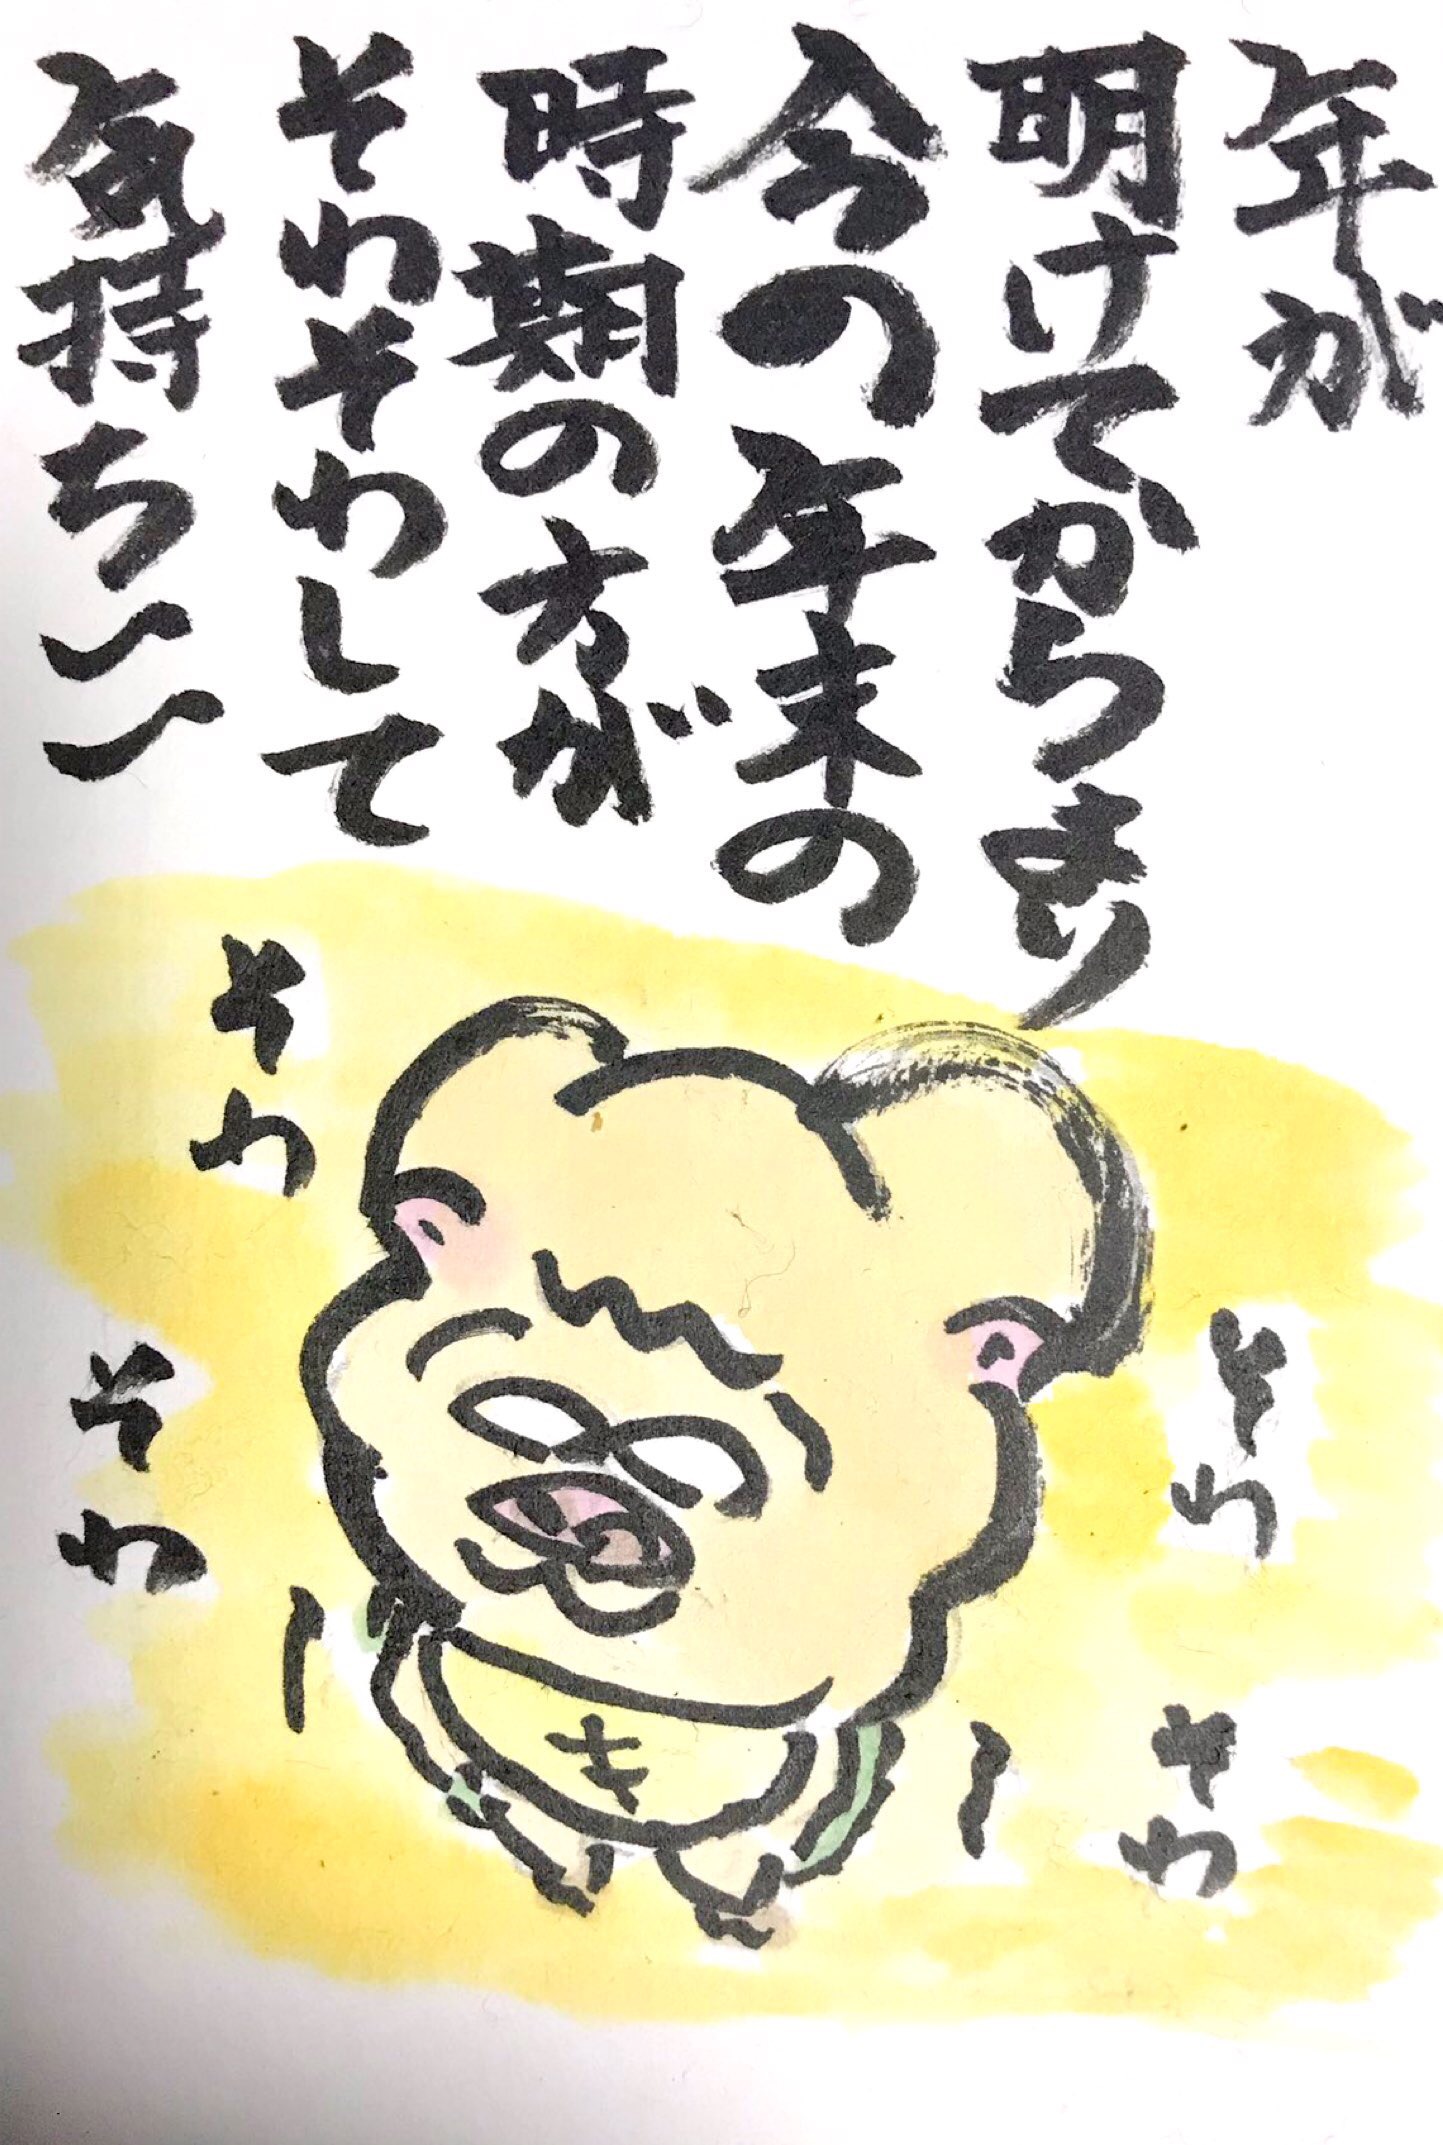 年が
明けてからより
今の年末の
時期の方が
そわそわして
気持ちニニ
そわ
そわ
そわ
そわ
キ